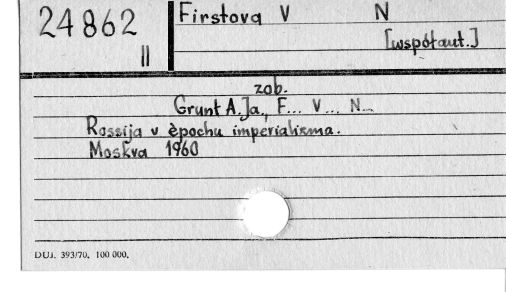 24862
II
Firstova V N
[współaut.]
zob.
Grunt A.Ja., F... V... N...
Rossija v èpochu imperializma.
Moskva 1960
DUJ. 393/70. 100 000.